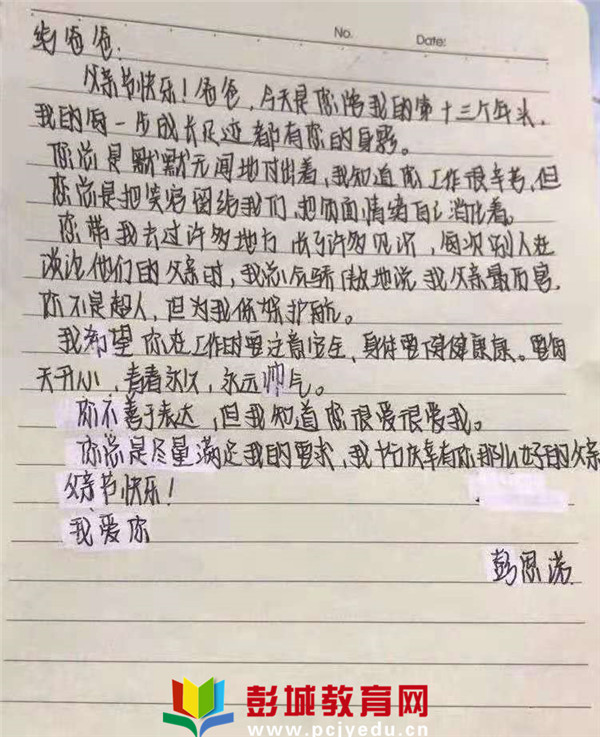 No. Date:
给爸爸:
父亲节快乐！爸爸，今天是你陪我的第十三个年头，
我的每一步成长足迹都有你的身影。
你总是默默无闻地付出着，我知道你工作很辛苦，但
你总是把笑容留给我们，把负面情绪自己消化着。
你带我去过许多地方 长了许多见识，每次别人在
谈论他们的父亲时，我总会骄傲地说 我父亲最厉害，
你不是超人，但为我保驾护航。
我希望你在工作时要注意安全，身体要健健康康。要每
天开心，青春永久，永远帅气。
你不善于表达，但我知道你很爱很爱我。
你总是尽量满足我的要求，我 庆幸有你那么好的父亲
父亲节快乐！
我爱你
彭思诺
彭城教育网
www.pcjyedu.cn